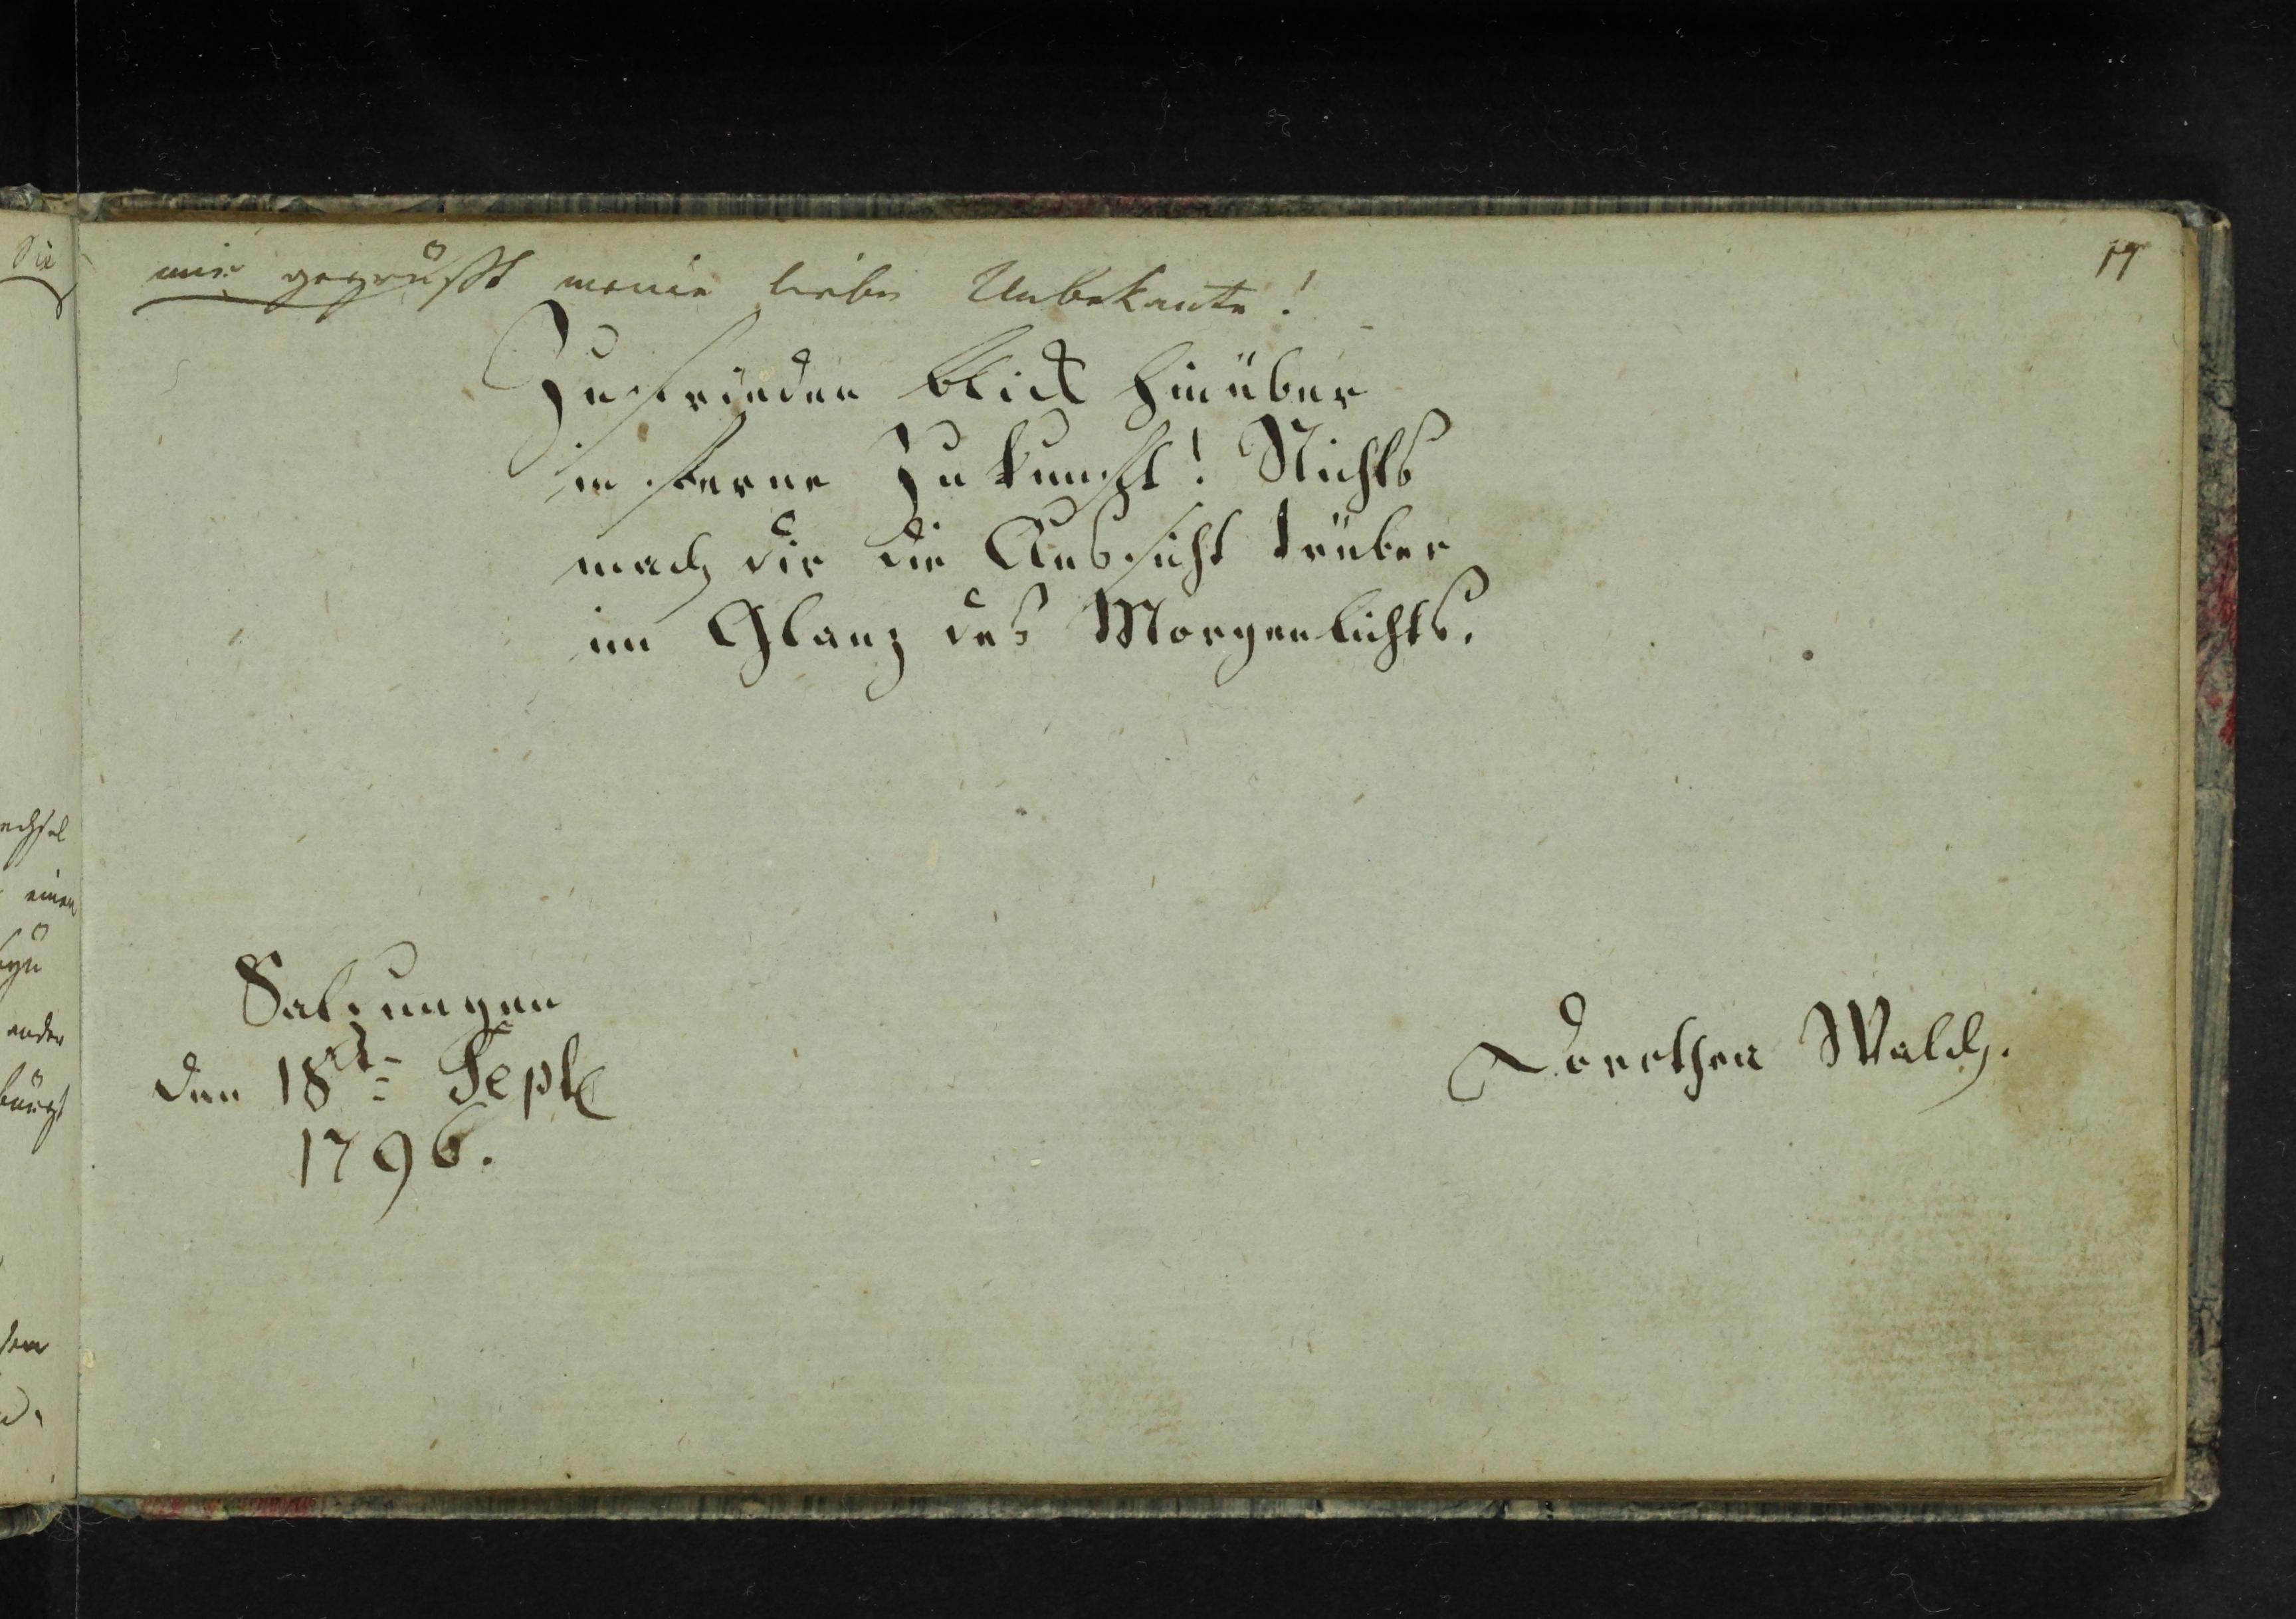 17
mir gegrüßt meine liebe Unbekante!
Zufrieden blick hinüber
in ferne Zukunft! Nichts
mach dir die Aussicht trüber
im Glanz des Morgenlichts.
Salzungen
den 18t Sept
1796.
Dorethea Walch.
Sie
echsel
einen